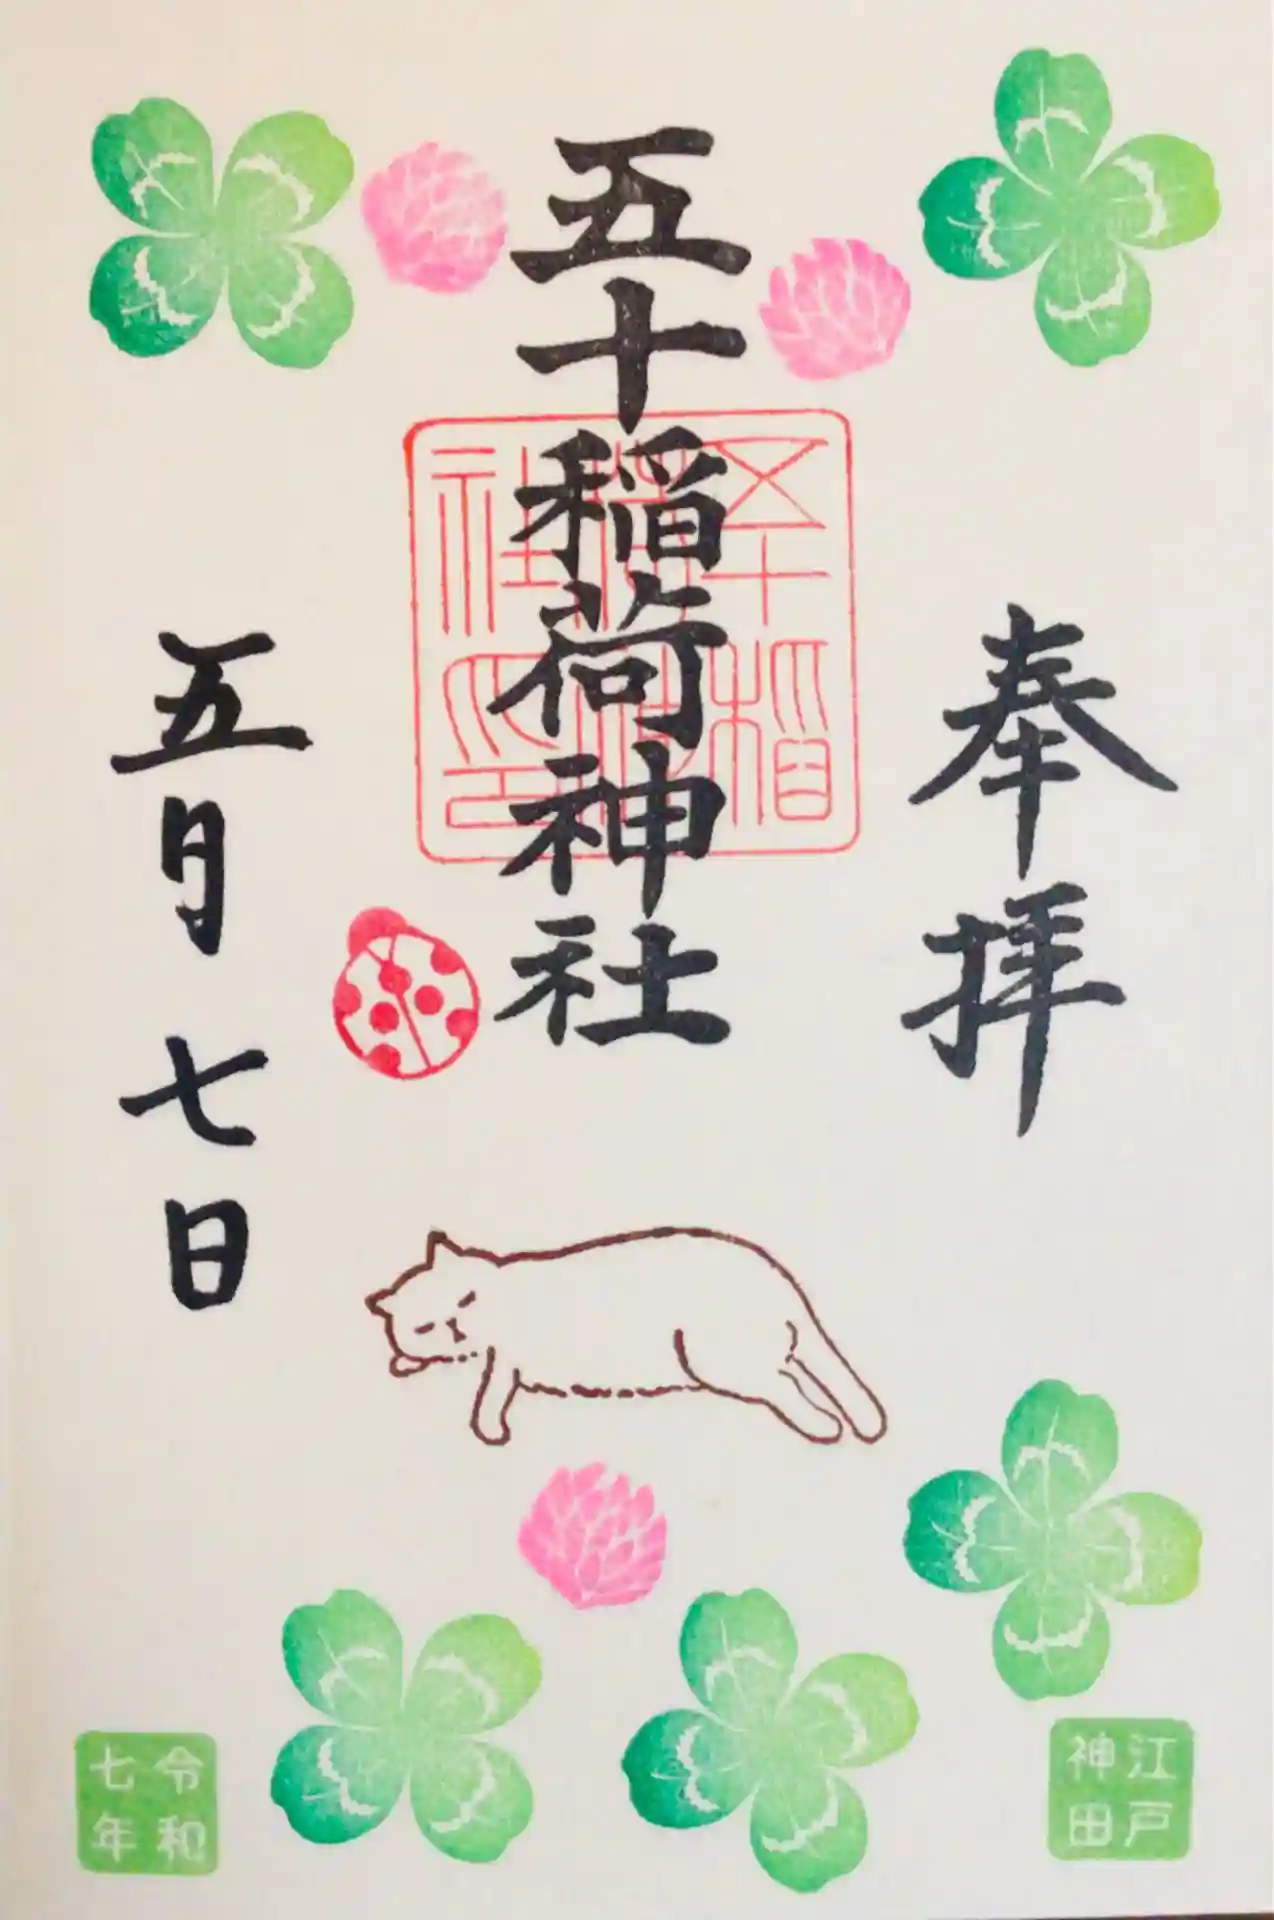 奉拝
五十稲荷神社
五十稲荷神社印
五月七日
江戸
神田
令和
七年